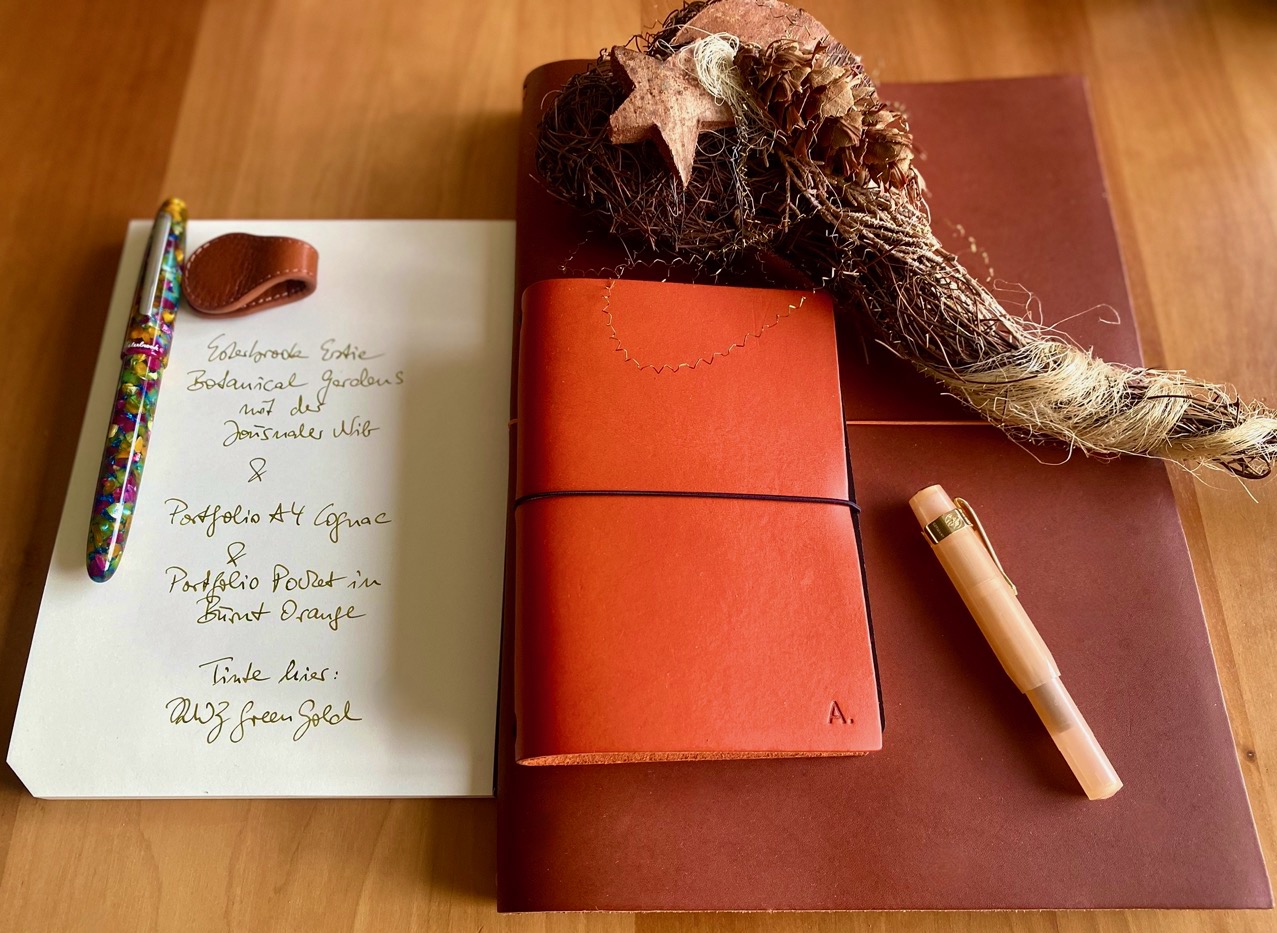 Esterbrook Estie
Botanical Gardens
mit der
Journaler Nib
&
Portfolio A4 Cognac
&
Portfolio Pocket in
Burnt Orange
Tinte hier:
Green Gold
Esterbrook
A.